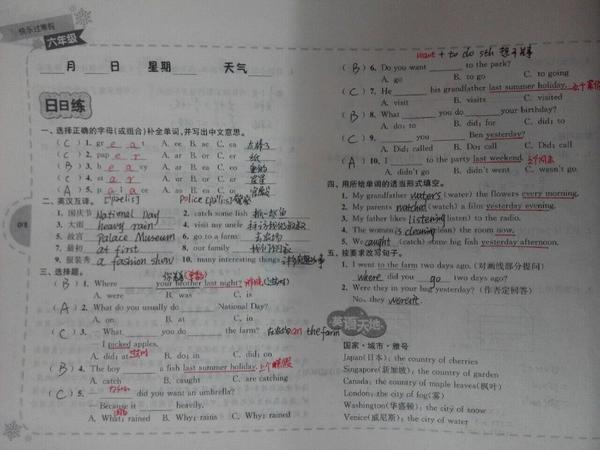 快乐过寒假
六年级
月 日 星期 天气
日日练
一、选择正确的字母(或组合)补全单词,并写出中文意思。
( C ) 1. gr e a t A. ee B. ae C. ea 太棒了
( C ) 2. pap e r A. ar B. or C. er 纸
( B ) 3. h e a vy A. ee B. ea C. ae 重的
( C ) 4. st a r A. ur B. er C. ar
( A ) 5. p a l a ce A. aa B. ae C. ea
二、英汉互译。
1. 国庆节 National Day 2. catch some fish 抓一些鱼
3. 大雨 heavy rain 4. visit my uncle
5. 故宫 Palace Museum 6. go to a farm 去农场
7. 最初 at first 8. our family 我们的家
9. 服装秀 a fashion show 10. many interesting things
三、选择题。
( B ) 1. Where your brother last night?
A. were B. was C. is
( A ) 2. What do you usually do National Day?
A. on B. at C. in
( C ) 3. —What you do the farm? on the farm
—I picked apples.
A. did; at B. do; in C. did; on
( B ) 4. The boy a fish last summer holiday.
A. catch B. caught C. are catching
( C ) 5. — did you want an umbrella?
—Because it heavily.
A. What; rained B. Why; rains C. Why; rained
want + to do sth 想干某事
( B ) 6. Do you want to the park?
A. go B. to go C. to going
( C ) 7. He his grandfather last summer holiday.
A. visit B. visits C. visited
( B ) 8. What you your birthday?
A. do; to B. did; for C. did; to
( C ) 9. you Ben yesterday?
A. Did; called B. Do; call C. Did; call
( A ) 10. I to the party last weekend.
A. didn't go B. didn't went C. wasn't go
四、用所给单词的适当形式填空。
1. My grandfather waters (water) the flowers every morning.
2. My parents watched (watch) a film yesterday.
3. My father likes listening (listen) to the radio.
4. The woman is cleaning (clean) the room now.
5. We caught (catch) some big fish yesterday afternoon.
五、按要求改写句子。
1. I went to the farm two days ago. (对画线部分提问)
where did you go two days ago?
2. Were they in your bag yesterday? (作否定回答)
No, they weren't.
英语天地
国家·城市·雅号
Japan(日本): the country of cherries
Singapore(新加坡): the country of garden
Canada: the country of maple leaves(枫叶)
London: the city of fog(雾)
Washington(华盛顿): the city of snow
Venice(威尼斯): the city of water